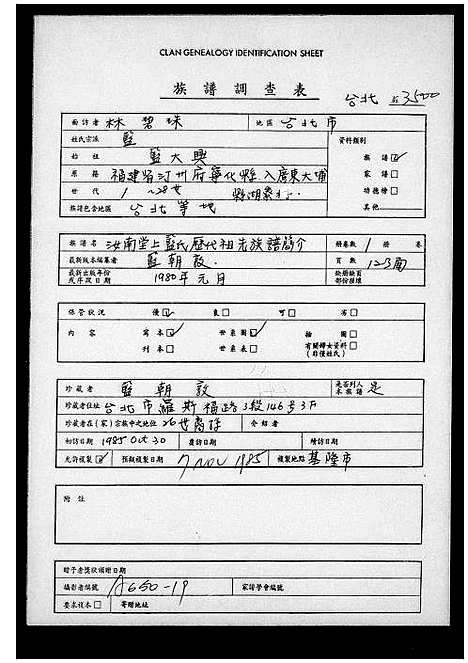 CLAN GENEALOGY IDENTIFICATION SHEET
族譜調查表
台北 3500
面訪者 林碧珠 地區 台北市
姓氏宗派 藍 資料類別
始祖 藍大興 族譜☑
原籍 福建省汀州府寧化縣入廣東大埔 家譜□
世代 1~28世 縣湖寮 功德榜□
族譜包含地區 台北等地 其他
族譜名 汝南堂上藍氏歷代祖先族譜簡介 冊卷數 1 冊 卷
最新版本編纂者 藍朝 頁數 123面
最新出版年份或序況日期 1980年元月 缺冊缺頁部份種壞
保管狀況 優☑ 良□ 可□ 劣□
內容 寫本☑ 世系圖☑ 繪圖□
刊本□ 世系表□ 有關婦女資料□(非僅姓氏)
珍藏者 藍朝 是否列入本族譜 是
珍藏者住址 台北市羅斯福路3段146号3F
珍藏者在(家)宗族中之地位 26世裔孫 介紹者
初訪日期 1985 Oct 30 賡訪日期 續訪日期
允許複製☑ 預擬複製日期 7 NOV 1985 複製地點 基隆市
附註
贈予者獎狀頒贈日期
攝影者編號 A650-19 家譜學會編號
要求複本□ 寄贈地址